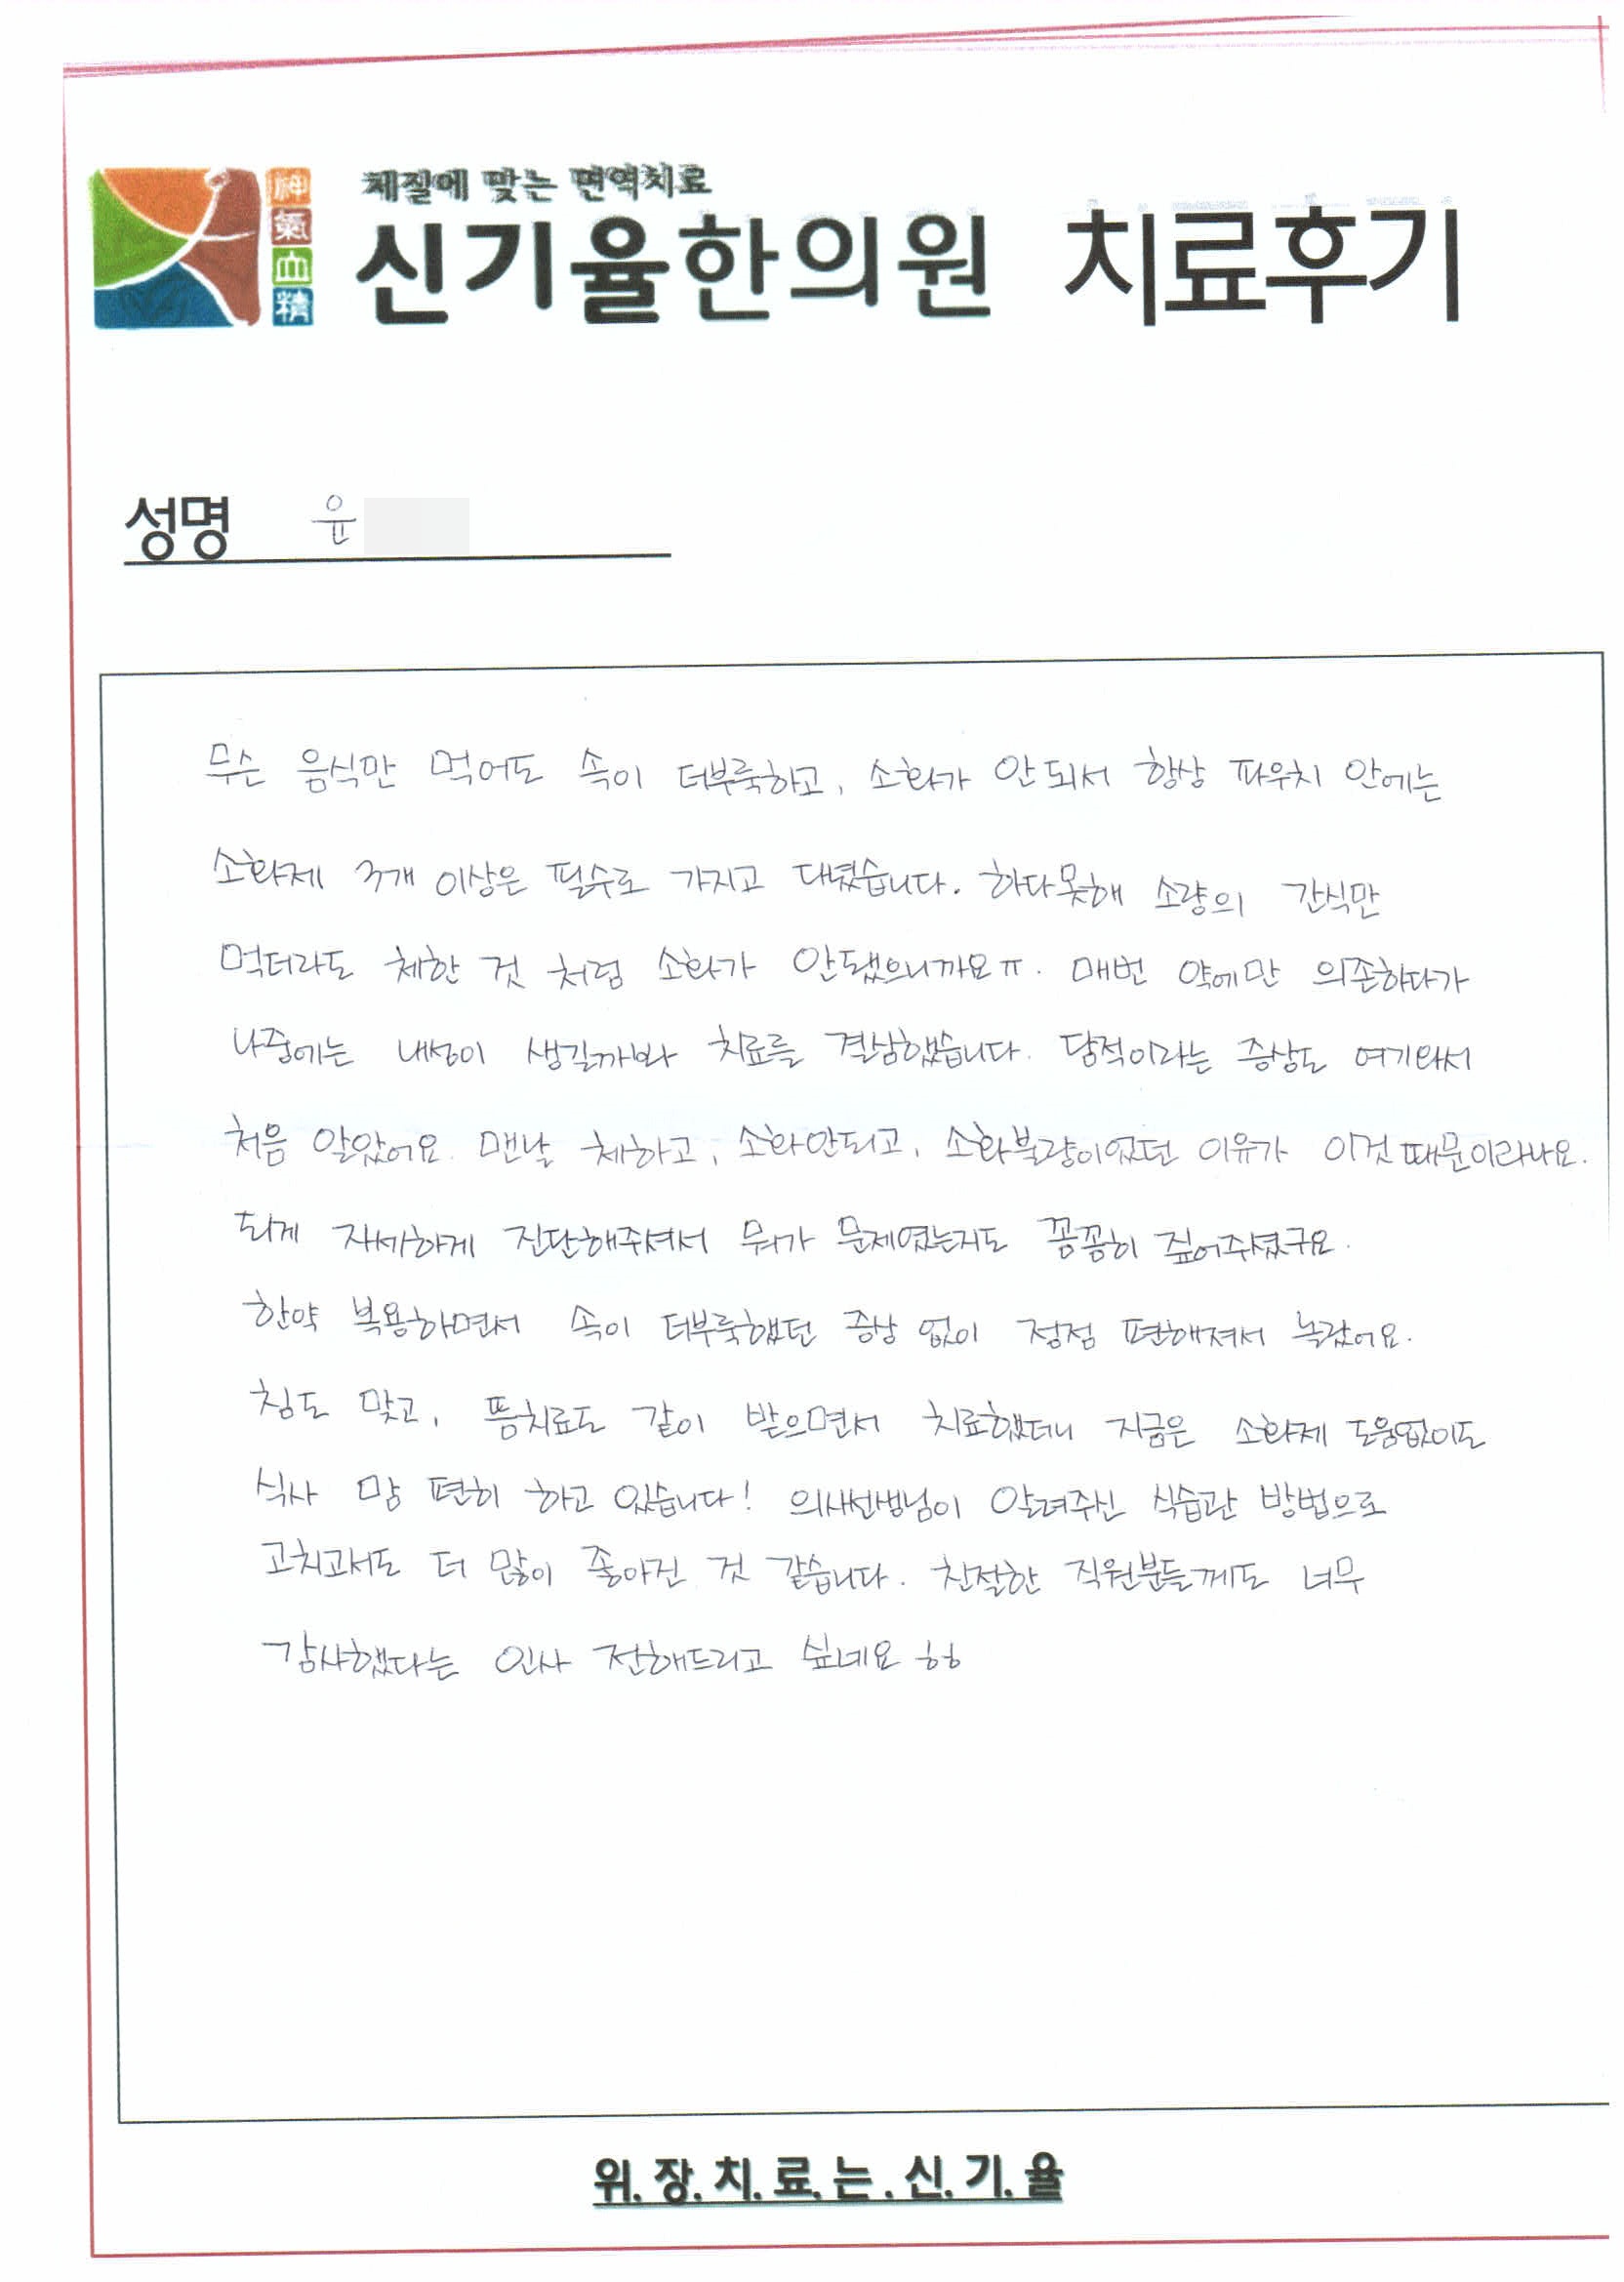 체질에 맞는 면역치료
神氣血精
신기율한의원 치료후기
성명 윤
무슨 음식만 먹어도 속이 더부룩하고, 소화가 안되서 항상 파우치 안에는
소화제 3개 이상은 필수로 가지고 다녔습니다. 하다못해 소량의 간식만
먹더라도 체한 것 처럼 소화가 안됐으니까요ㅠ. 매번 약에만 의존하다가
나중에는 내성이 생길까봐 치료를 결심했습니다. 담적이라는 증상도 여기와서
처음 알았어요. 맨날 체하고, 소화안되고, 소화불량이었던 이유가 이것 때문이라나요.
되게 자세하게 진단해주셔서 뭐가 문제였는지도 꼼꼼히 짚어주셨구요.
한약 복용하면서 속이 더부룩했던 증상 없이 점점 편해져서 놀랐어요.
침도 맞고, 뜸치료도 같이 받으면서 치료했더니 지금은 소화제 도움없이도
식사 맘 편히 하고 있습니다! 의사선생님이 알려주신 식습관 방법으로
고치고서도 더 많이 좋아진 것 같습니다. 친절한 직원분들께도 너무
감사했다는 인사 전해드리고 싶네요 ㅎㅎ
위.장.치.료.는.신.기.율